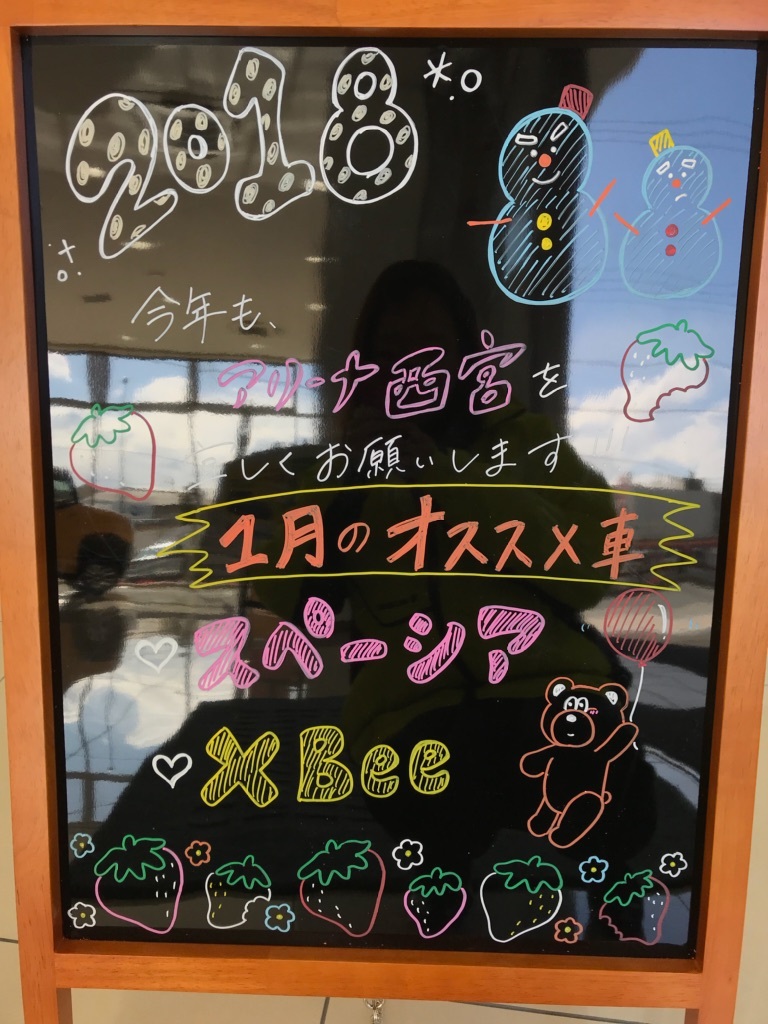 2018
今年も、
アリーナ西宮を
宜しくお願いします
1月のオススメ車
スペーシア
XBee